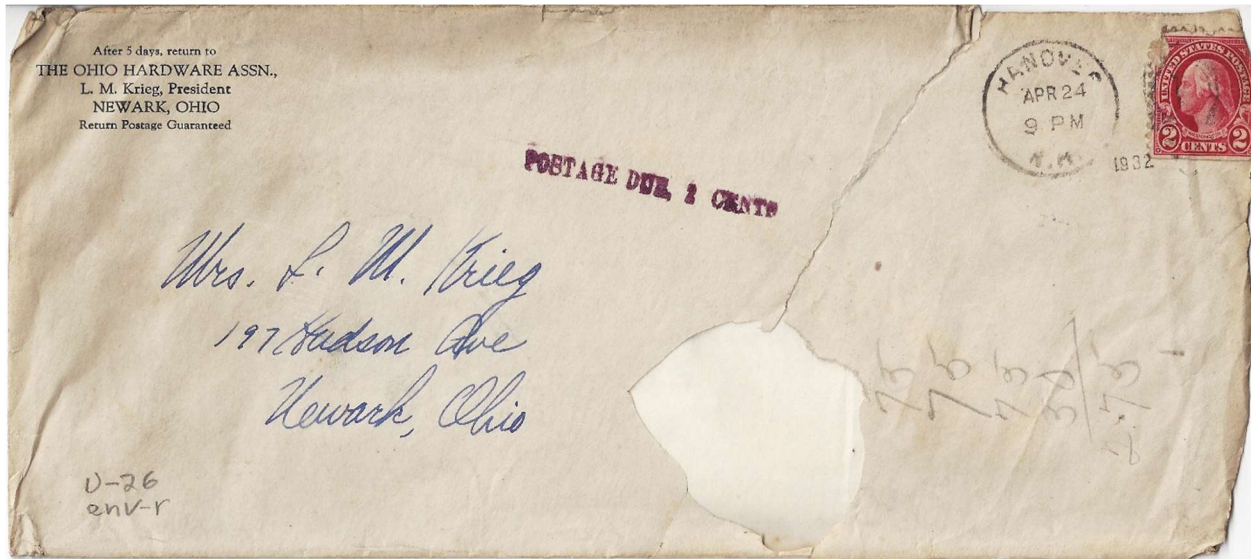 After 5 days, return to
THE OHIO HARDWARE ASSN.,
L. M. Krieg, President
NEWARK, OHIO
Return Postage Guaranteed
HANOVER
APR 24
9 PM
N.H.
1932
UNITED STATES POSTAGE
2 CENTS 2
POSTAGE DUE, 2 CENTS
Mrs. L. M. Krieg
197 Hudson Ave
Newark, Ohio
U-26
env-r